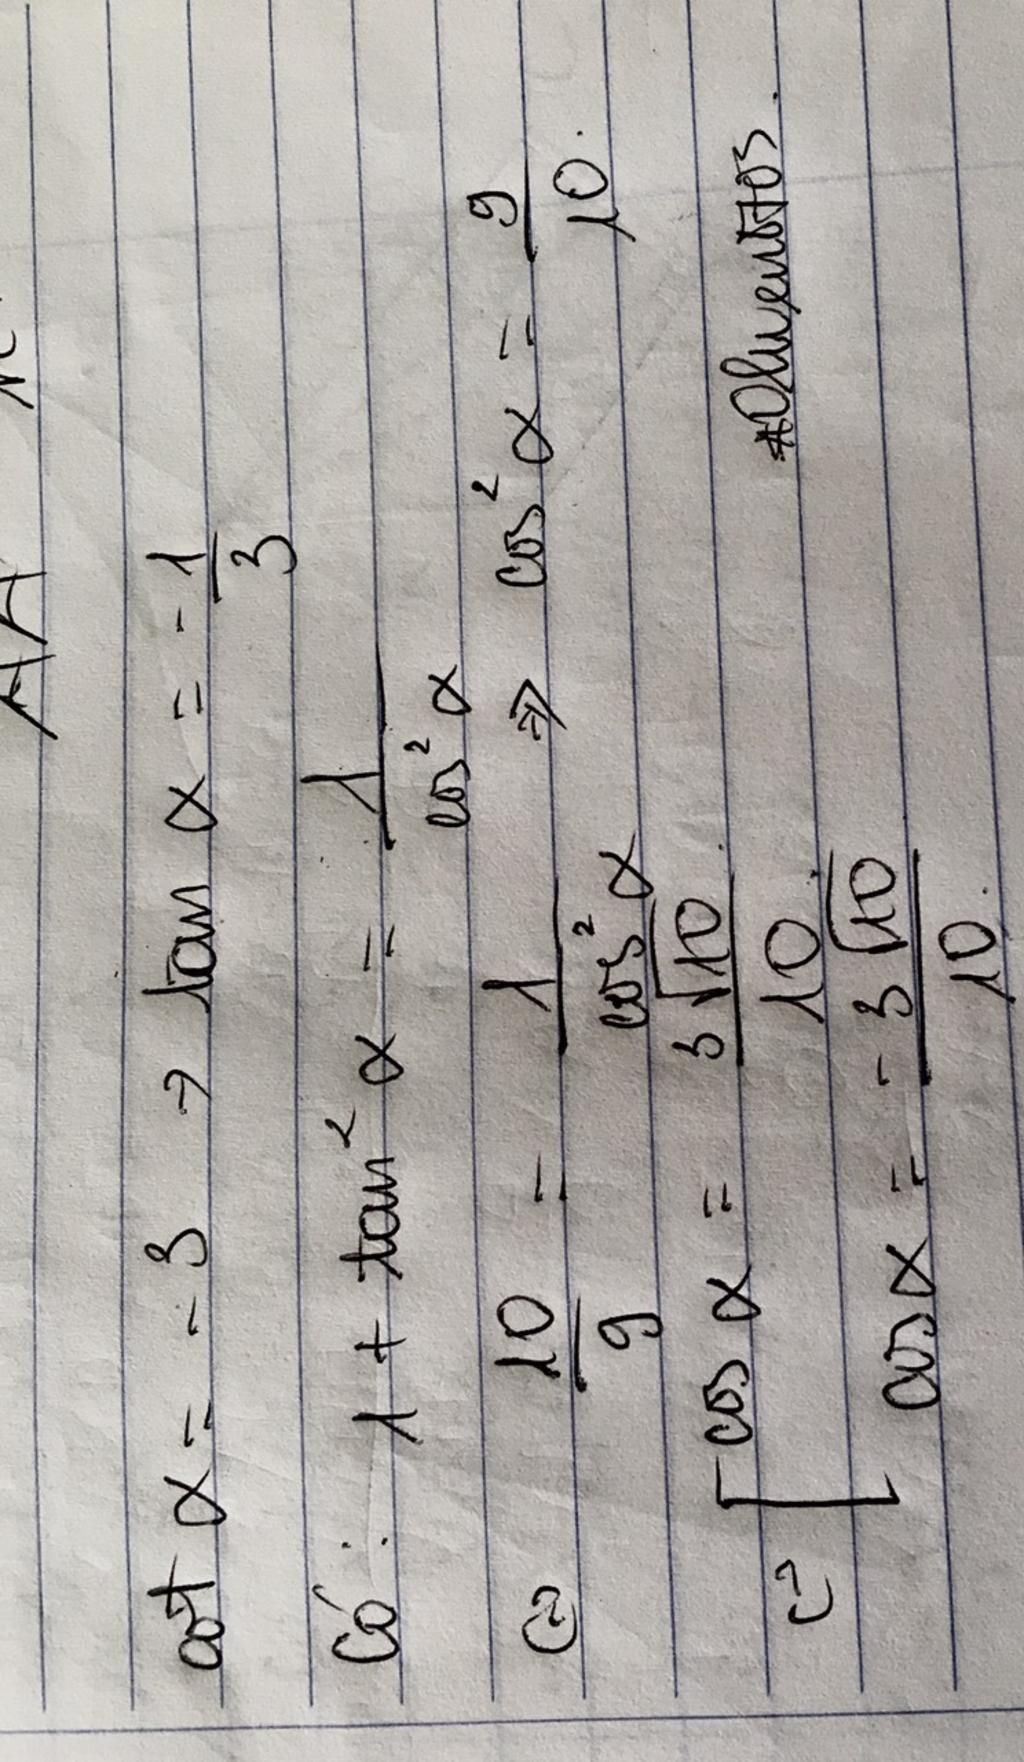 cot α = -3 → tan α = -1/3
Có: 1 + tan² α = 1/cos² α
⇔ 10/9 = 1/cos² α ⇒ cos² α = 9/10.
⇔ [ cos α = 3√10/10.
cos α = -3√10/10.